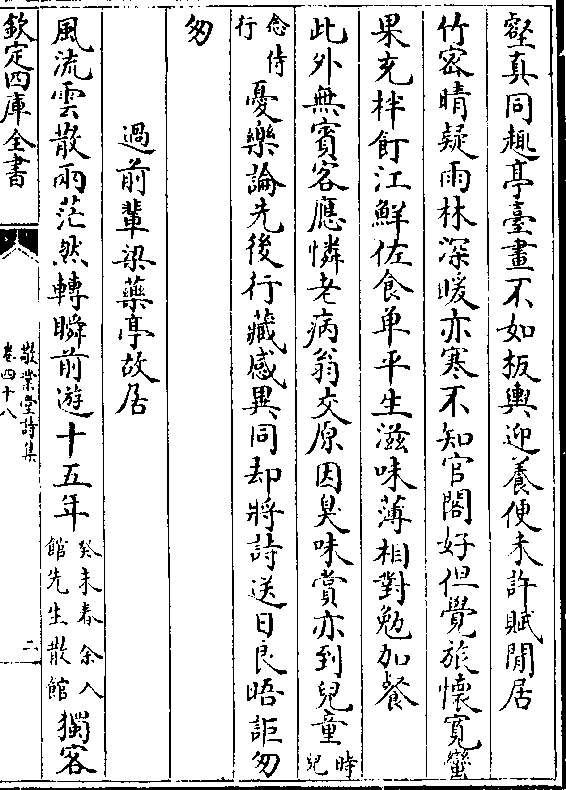 壑真同趣亭臺畫不如板輿迎養便未許賦閒居
竹密晴疑雨林深暖亦寒不知官閣好但覺旅懷寛蠻
果充柈飣江鮮佐食单平生滋味薄相對勉加餐
此外無賓客應憐老病翁交原因臭味賞亦到兒童時兒
念侍行憂樂論先後行藏感異同却將詩送日良晤詎匆
匆
過前輩梁藥亭故居
風流雲散兩茫然轉瞬前遊十五年癸未春余入館先生散館獨客
欽定四庫全書
敬業堂詩集
卷四十八
二